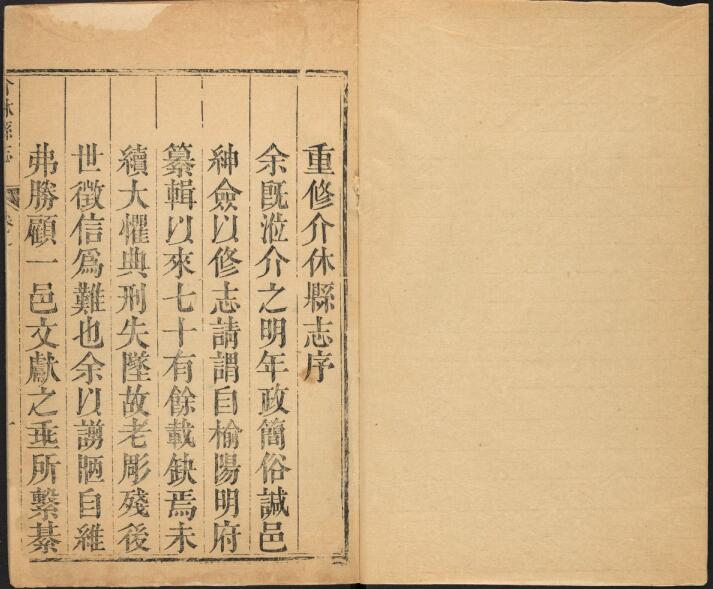 重修介休縣志序
余既涖介之明年政簡俗諴邑
紳僉以修志請謂自榆陽明府
纂輯以來七十有餘載缺焉未
續大懼典刑失墜故老彫殘後
世徵信爲難也余以謭陋自維
弗勝顧一邑文獻之垂所繫綦
介休縣志
一